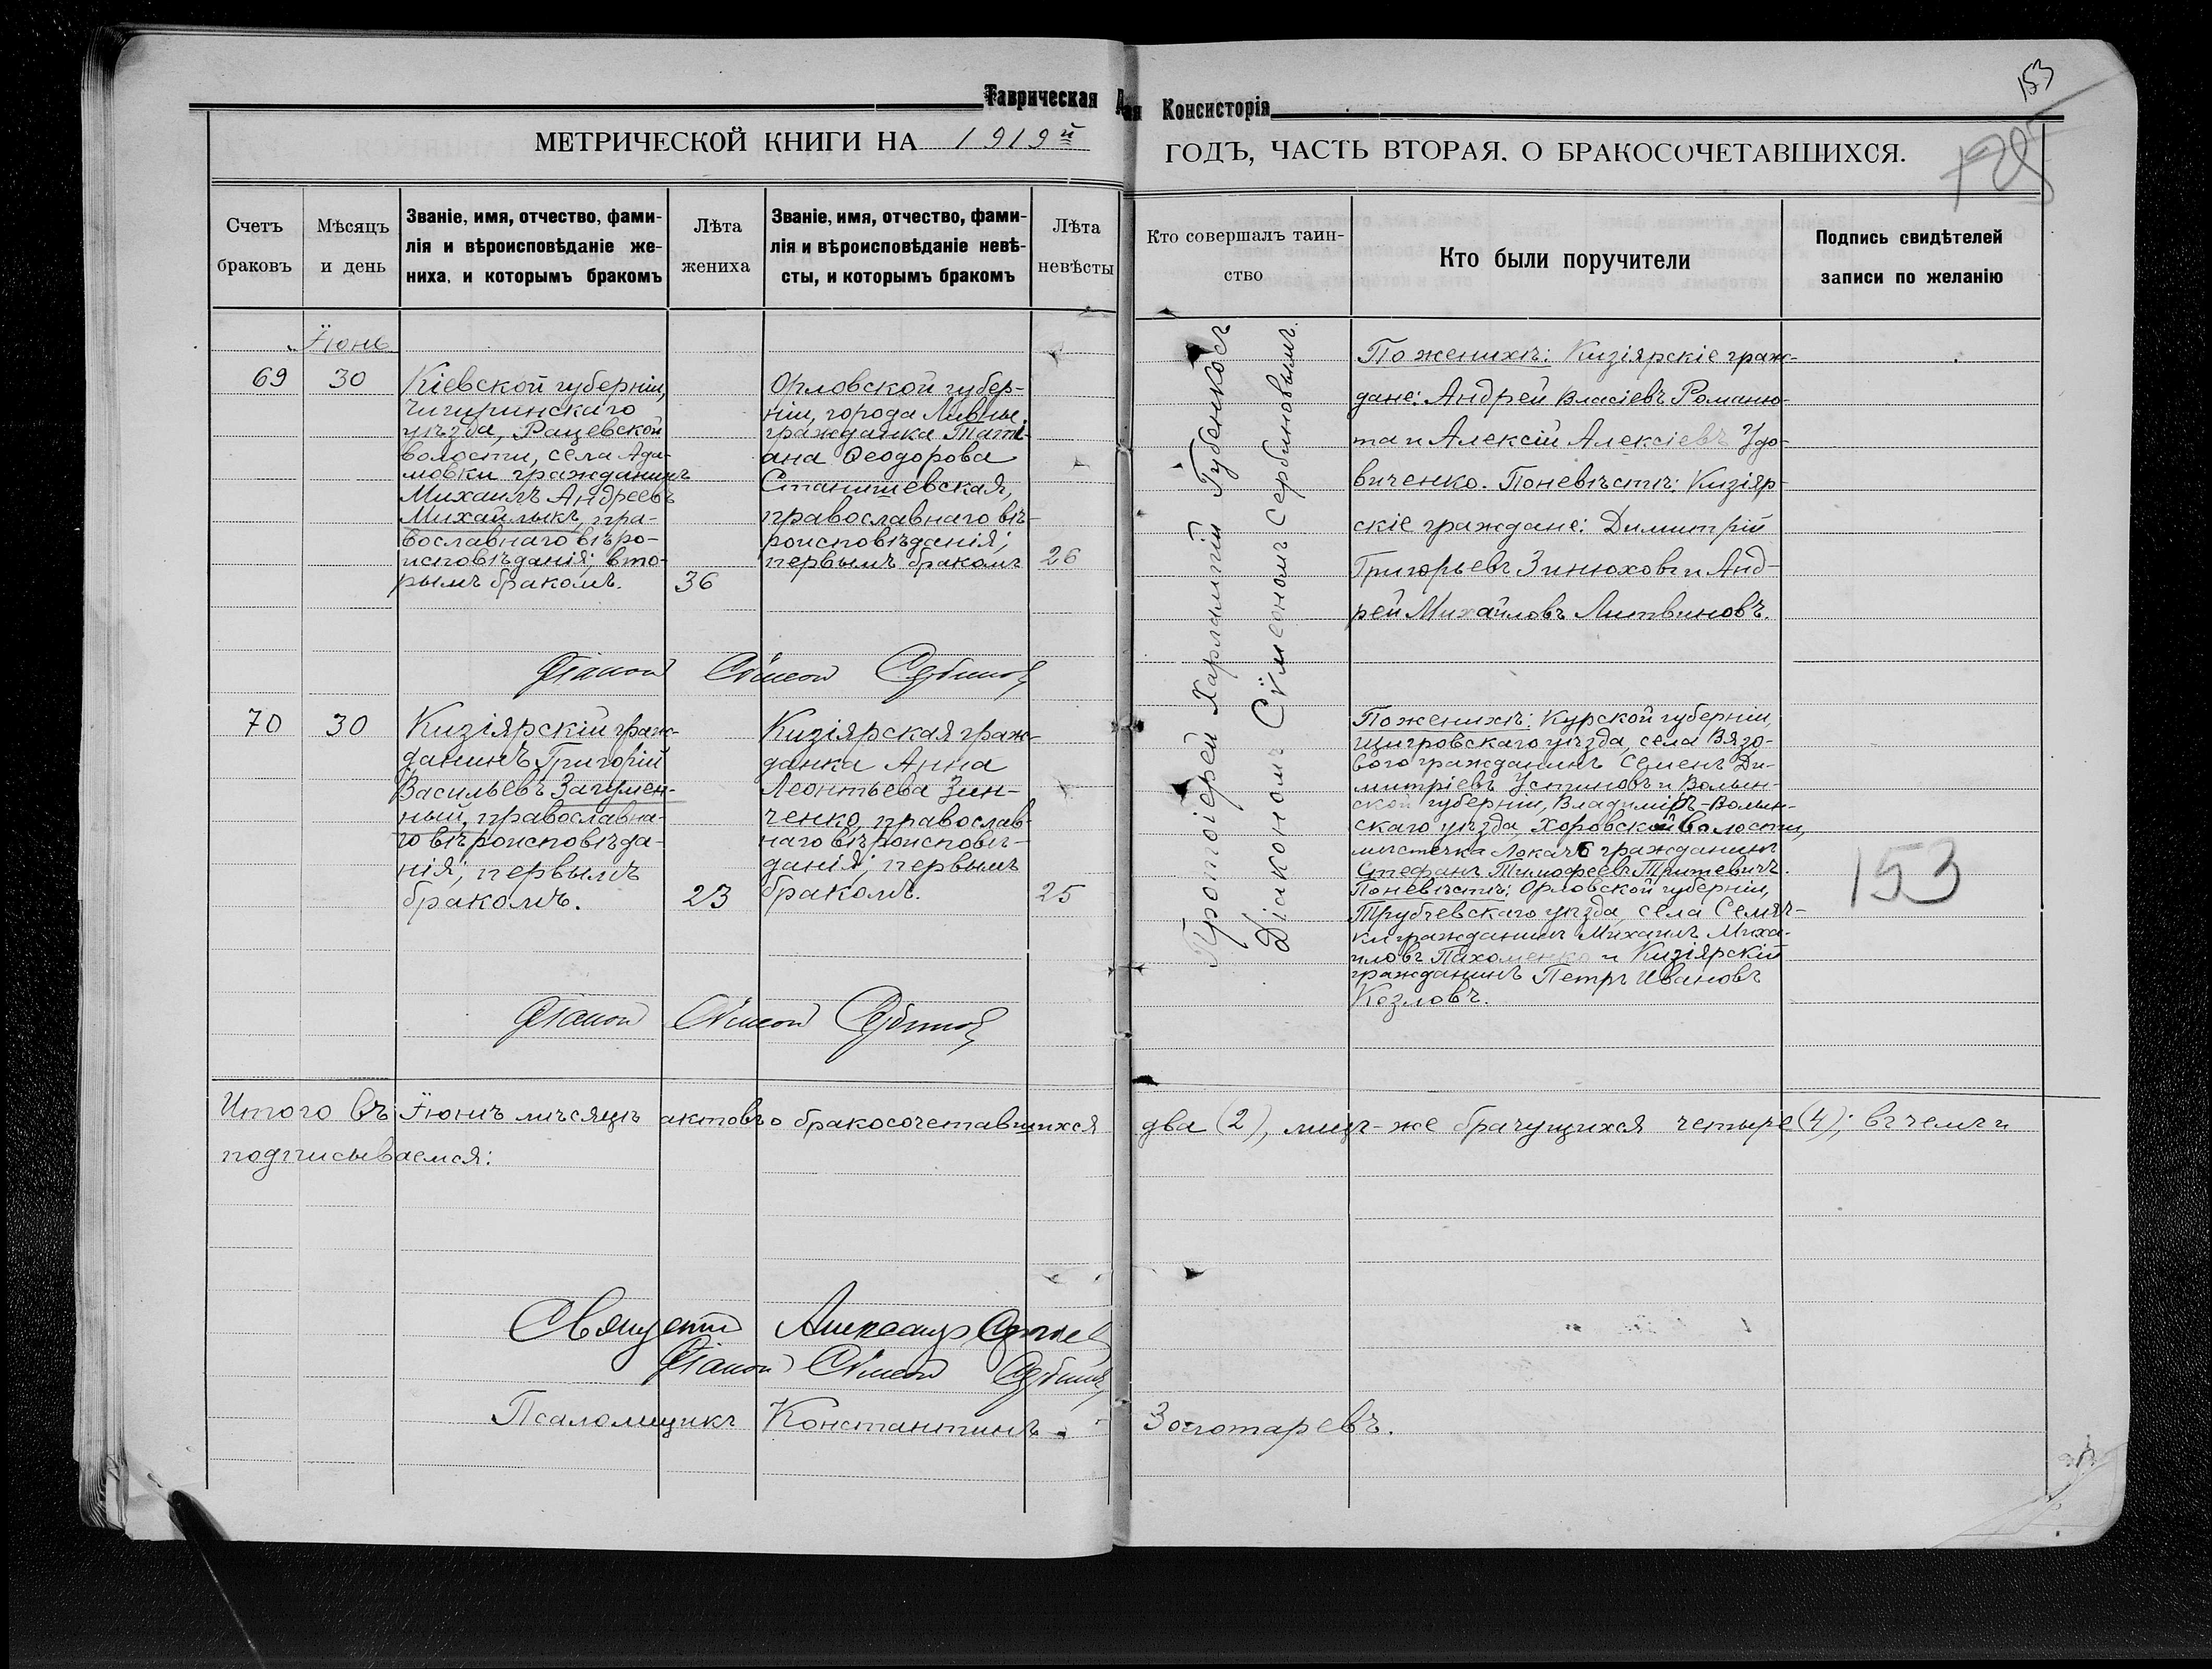 153
Таврическая Д
ая Консисторія
МЕТРИЧЕСКОЙ КНИГИ НА 1919й
ГОДЪ, ЧАСТЬ ВТОРАЯ. О БРАКОСОЧЕТАВШИХСЯ.
Счетъ
браковъ
Мѣсяцъ
и день
Званіе, имя, отчество, фами-
лія и вѣроисповѣданіе же-
ниха, и которымъ бракомъ
Лѣта
жениха
Званіе, имя, отчество, фами-
лія и вѣроисповѣданіе невѣ-
сты, и которымъ бракомъ
Лѣта
невѣсты
Кто совершалъ таин-
ство
Кто были поручители
Подпись свидѣтелей
записи по желанію
Їюнь
69
30
Кіевской губерніи,
Чигиринскаго
уѣзда, Рацевской
волости, села Ада-
мовки гражданинъ
Михаилъ Андреевъ
Михайлыкъ, пра-
вославнаго вѣро-
исповѣданія; вто-
рымъ бракомъ.
36
Орловской губер-
ніи, города Ливны,
гражданка Тати-
ана Ѳеодорова
Станишевская,
православнаго вѣ-
роисповѣданія;
первымъ бракомъ
26
Протоіерей Харлампій Губенкосъ
Діакономъ Сѵмеономъ Сербиновымъ.
По женихѣ: Кизіярскіе граж-
дане: Андрей Власіевъ Романю-
та и Алексій Алексіевъ Удо-
виченко. По невѣстѣ: Кизіяр-
скіе граждане: Димитрій
Григорьевъ Зинюховъ и Анд-
рей Михайловъ Литвиновъ.
Діаконъ Сѵмеонъ Сербиновъ
70
30
Кизіярскій граж-
данинъ Григорій
Васильевъ Загумен-
ный, православна-
го вѣроисповѣда-
нія; первымъ
бракомъ.
23
Кизіярская граж-
данка Анна
Леонтьева Зин-
ченко, православ-
наго вѣроисповѣ-
данія; первымъ
бракомъ.
25
По женихѣ: Курской губерніи,
Щигровскаго уѣзда, села Вязо-
вого гражданинъ Семенъ Ди-
митріевъ Устиновъ и Волын-
ской губерніи, Владиміръ-Волын-
скаго уѣзда Хоровской волости,
мѣстечка Локачъ гражданинъ
Стефанъ Тимофеевъ Тритевичъ.
По невѣстѣ: Орловской губерніи,
Трубчевскаго уѣзда, села Семяч-
ки гражданинъ Михаилъ Миха-
иловъ Пахоменко и Кизіярскій
гражданинъ Петръ Ивановъ
Козловъ.
153
Діаконъ Сѵмеонъ Сербиновъ
Итого въ Їюнѣ мѣсяцѣ актовъ о бракосочетавшихся два (2), лицъ-же брачущихся четыре (4); въ чемъ и
подписываемся:
Священникъ Александръ
Діаконъ Сѵмеонъ Сербиновъ
Псаломщикъ Константинъ Золотаревъ.